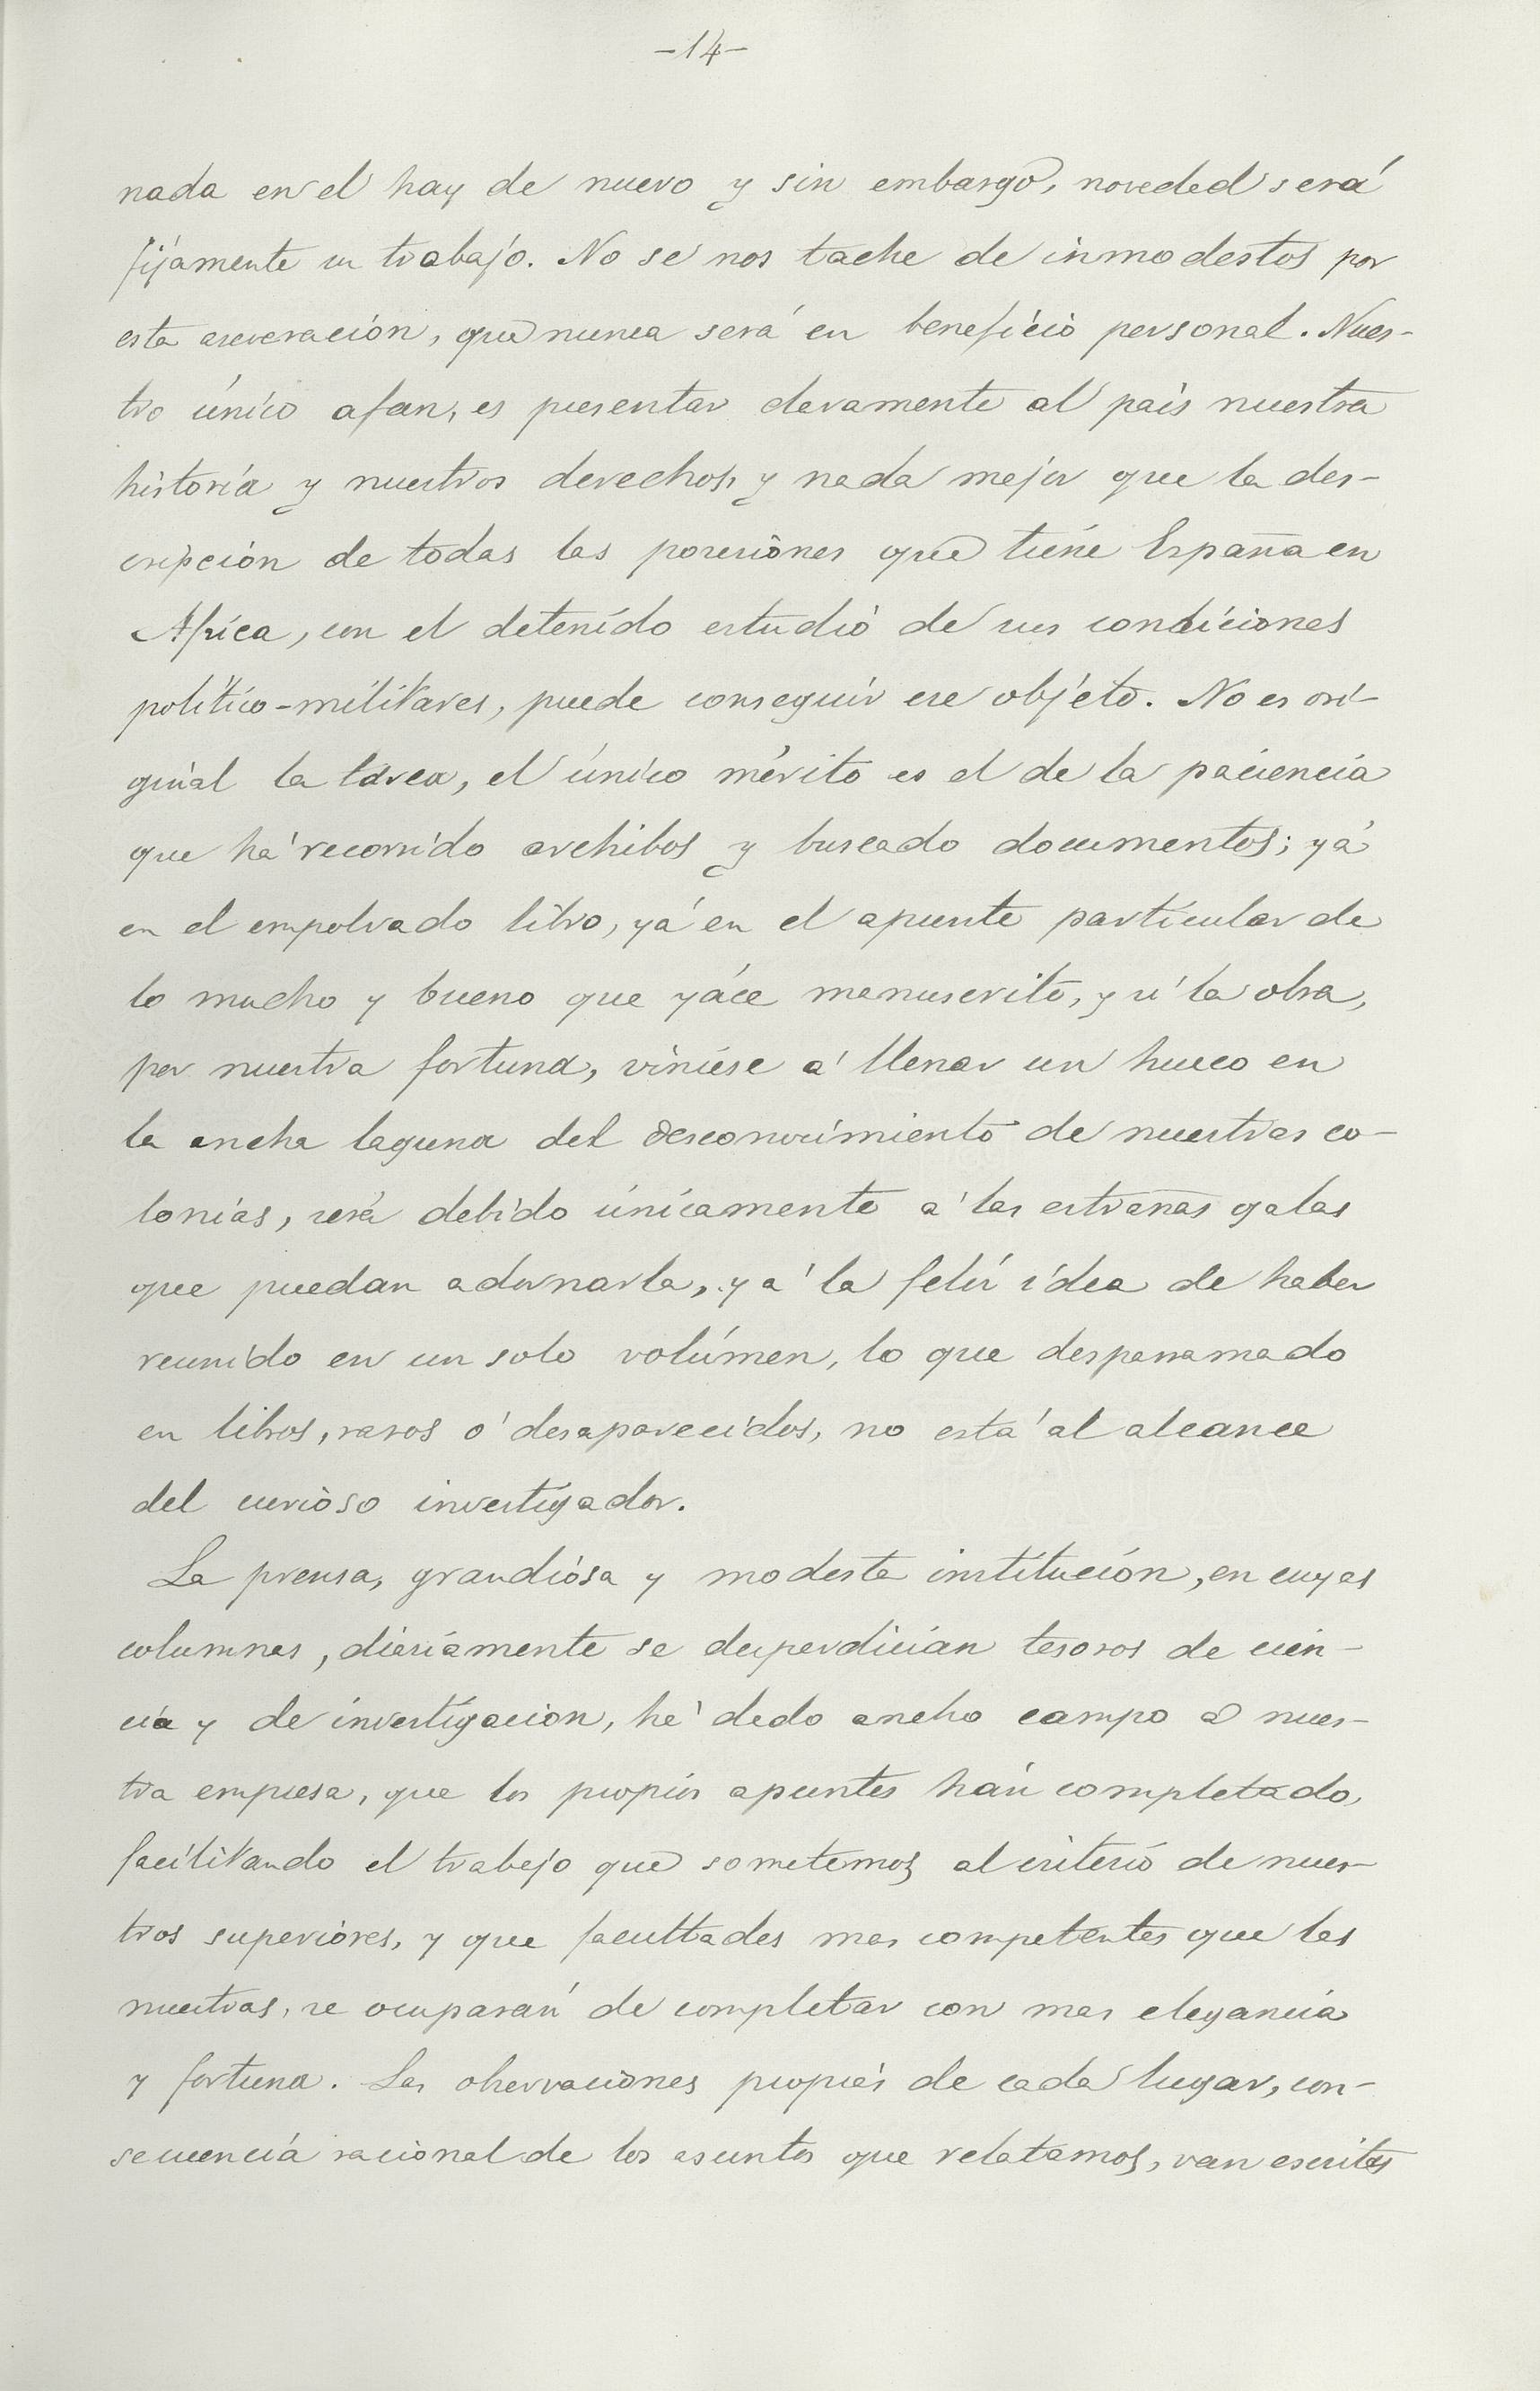 -14-
nada en el hay de nuevo y sin embargo, novedad será
fijamente su trabajo. No se nos tache de inmodestos por
esta aseveración, que nunca será en beneficio personal. Nues-
tro único afan, es presentar claramente al país nuestra
historia y nuestros derechos, y nada mejor que la des-
cripción de todas las posesiones que tiene España en
Africa, con el detenido estudio de sus condiciones
político-militares, puede conseguir ese objeto. No es ori-
ginal la tarea, el único mérito es el de la paciencia
que há recorrido archibos y buscado documentos; yá
en el empolvado libro, yá en el apunte particular de
lo mucho y bueno que yáce manuscrito, y si la obra,
por nuestra fortuna, viniese á llenar un hueco en
la ancha laguna del desconocimiento de nuestras co-
lonias, será debido únicamente á las estrañas galas
que puedan adornarla, y á la feliz idea de haber
reunido en un solo volúmen, lo que desparramado
en libros, raros ó desaparecidos, no está al alcance
del curioso investigador.
La prensa, grandiosa y modesta institución, en cuyas
columnas, diariamente se desperdician tesoros de cien-
cia y de investigacion, há dado ancho campo a nues-
tra empresa, que los propios apuntes hán completado,
facilitando el trabajo que sometemos al criterio de nues-
tros superiores, y que facultades mas competentes que las
nuestras, se ocuparán de completar con mas elegancia
y fortuna. Las observaciones propias de cada lugar, con-
secuencia racional de los asuntos que relatamos, van escritas